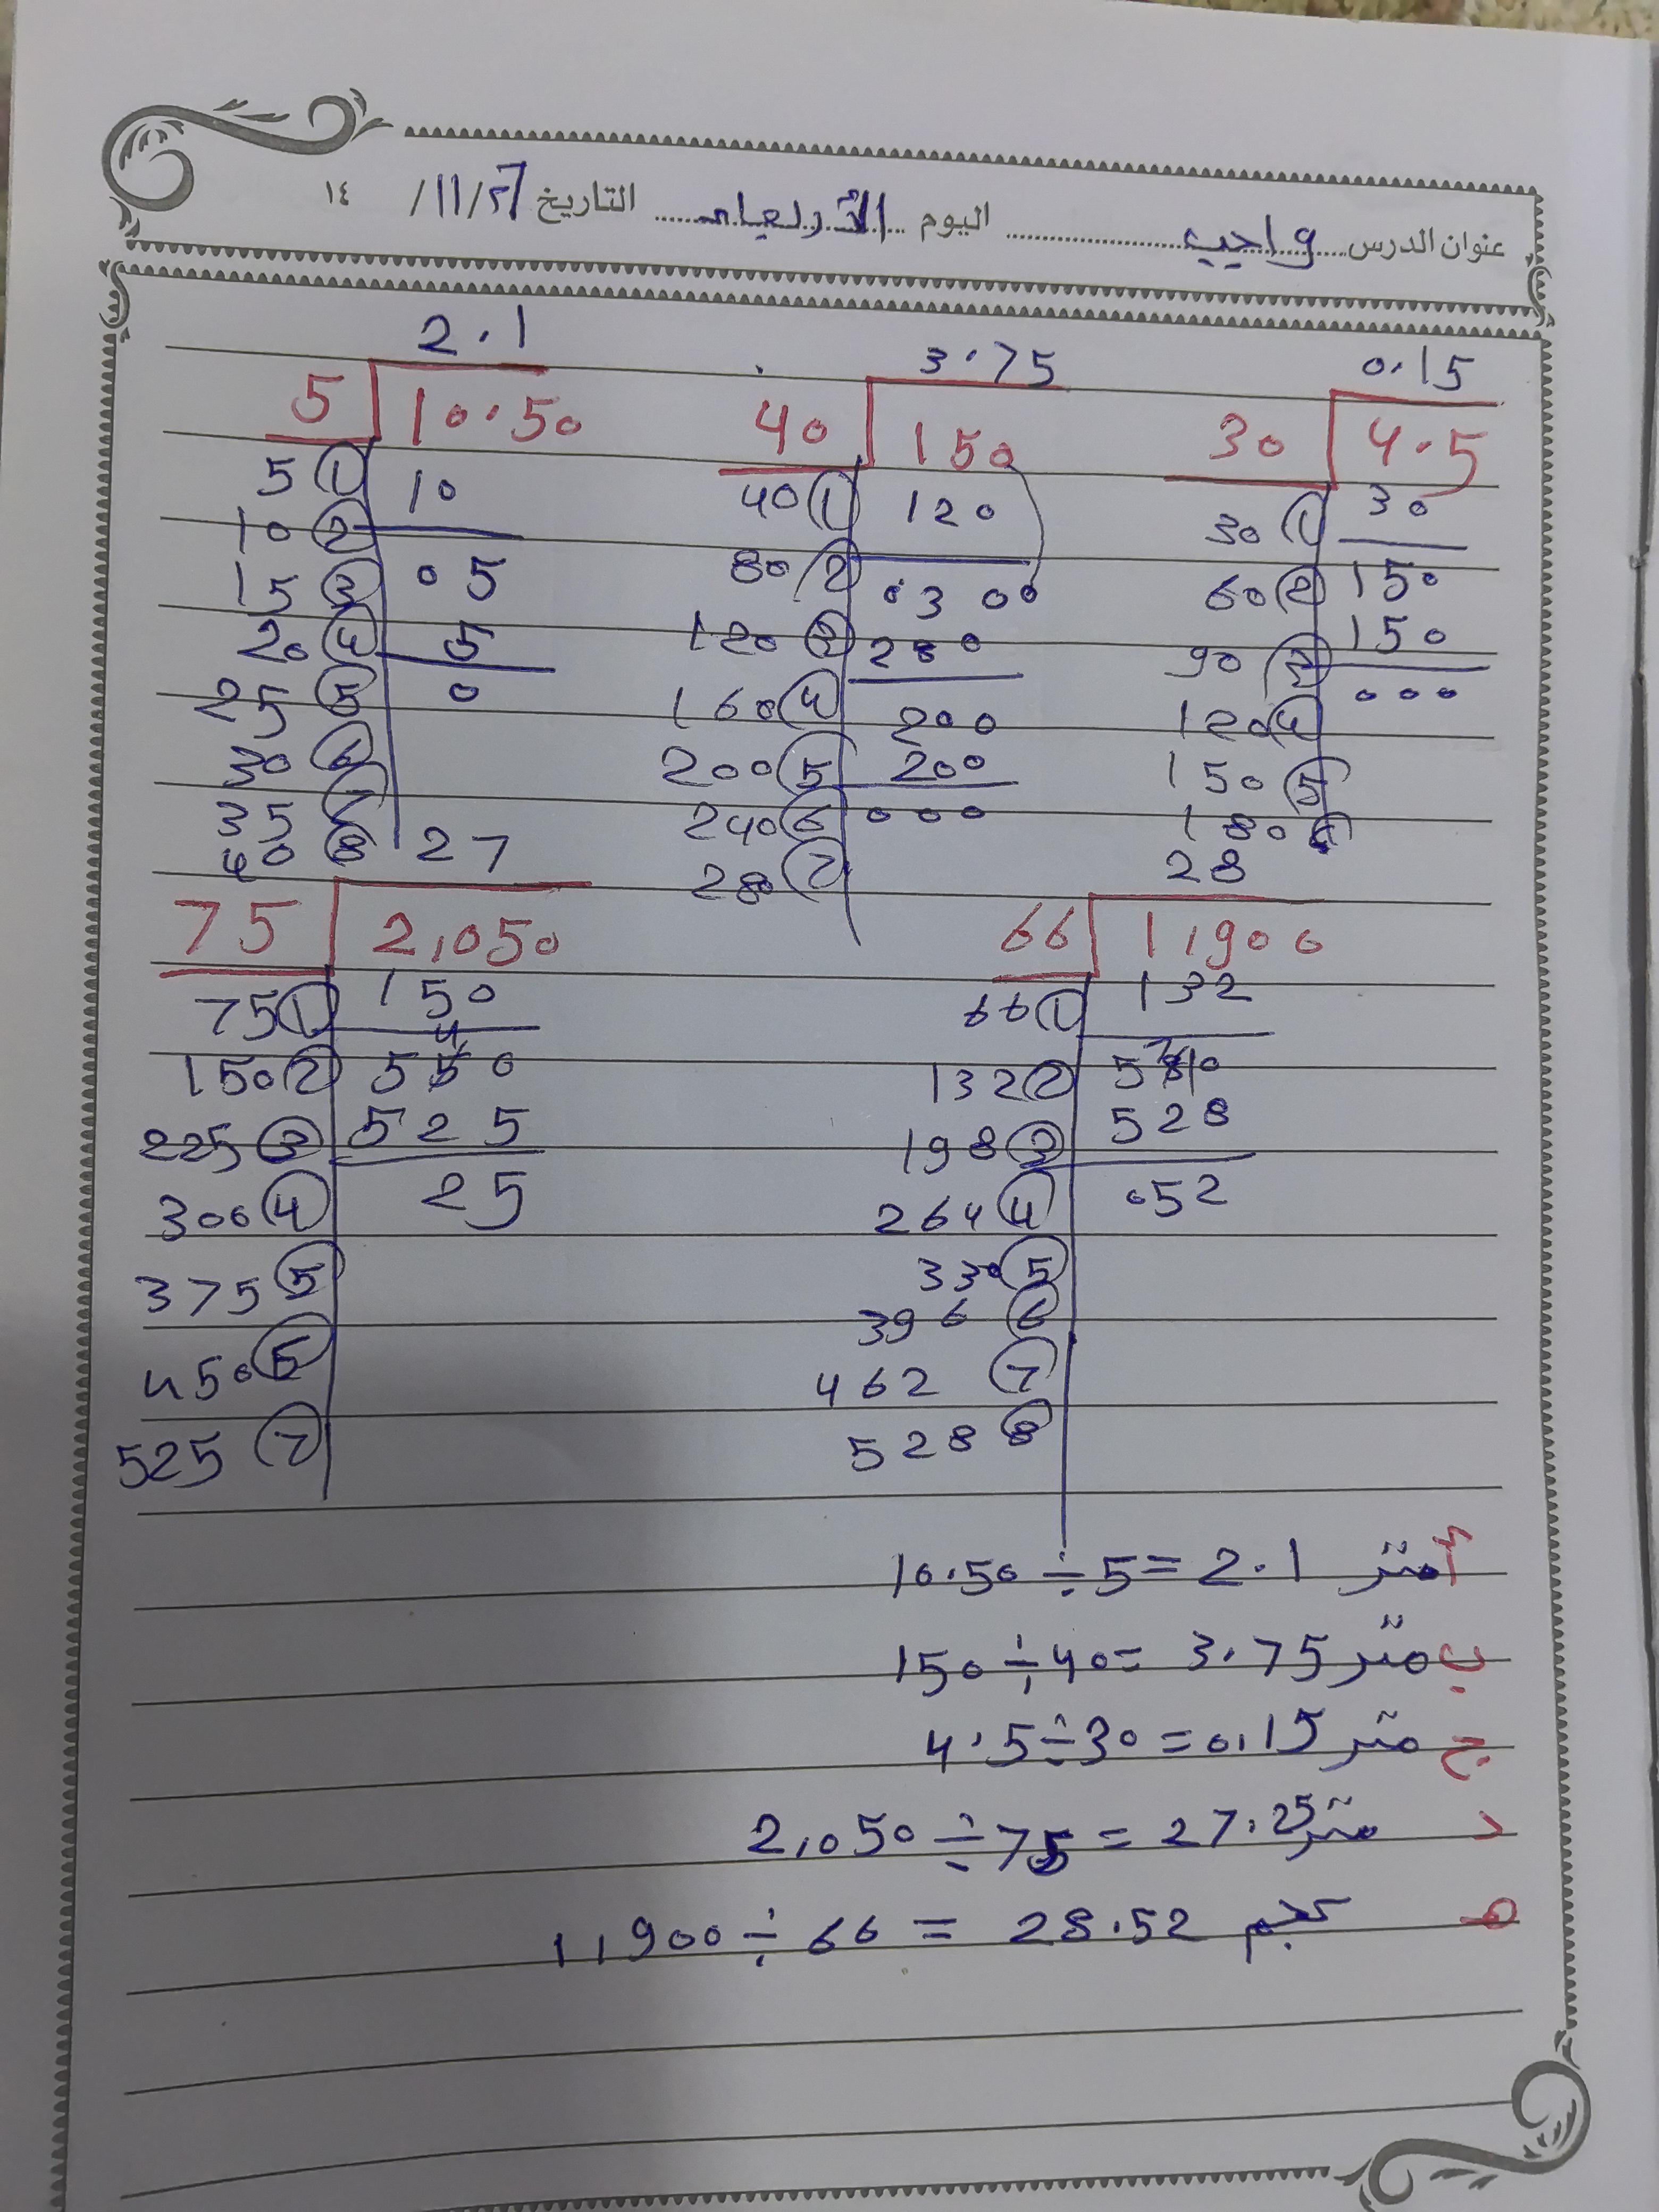 عنوان الدرس واجب اليوم الأربعاء التاريخ ٢٦/11/ ١٤
2.1 3.75 0.15
5 10.50 40 150 30 4.5
5 ① 10 40 ① 120 30 ① 30
10 ② 05 80 ② 0300 60 ② 150
15 ③ 5 120 ③ 280 90 ③ 150
20 ④ 0 160 ④ 200 120 ④ 000
25 ⑤ 200 ⑤ 200 150 ⑤
30 ⑥ 240 ⑥ 000 180 ⑥
35 ⑦ 280 ⑦
40 ⑧
27 28
75 2,050 66 1,900
75 ① 150 66 ① 132
150 ② 550 132 ② 580
225 ③ 525 198 ③ 528
300 ④ 25 264 ④ 052
375 ⑤ 330 ⑤
450 ⑤ 396 ⑥
525 ⑦ 462 ⑦
528 ⑧
أ متر 10.50 ÷ 5 = 2.1
ب متر 150 ÷ 40 = 3.75
ج متر 4.5 ÷ 30 = 0.15
د متر 2,050 ÷ 75 = 27.25
هـ كجم 1,900 ÷ 66 = 28.52